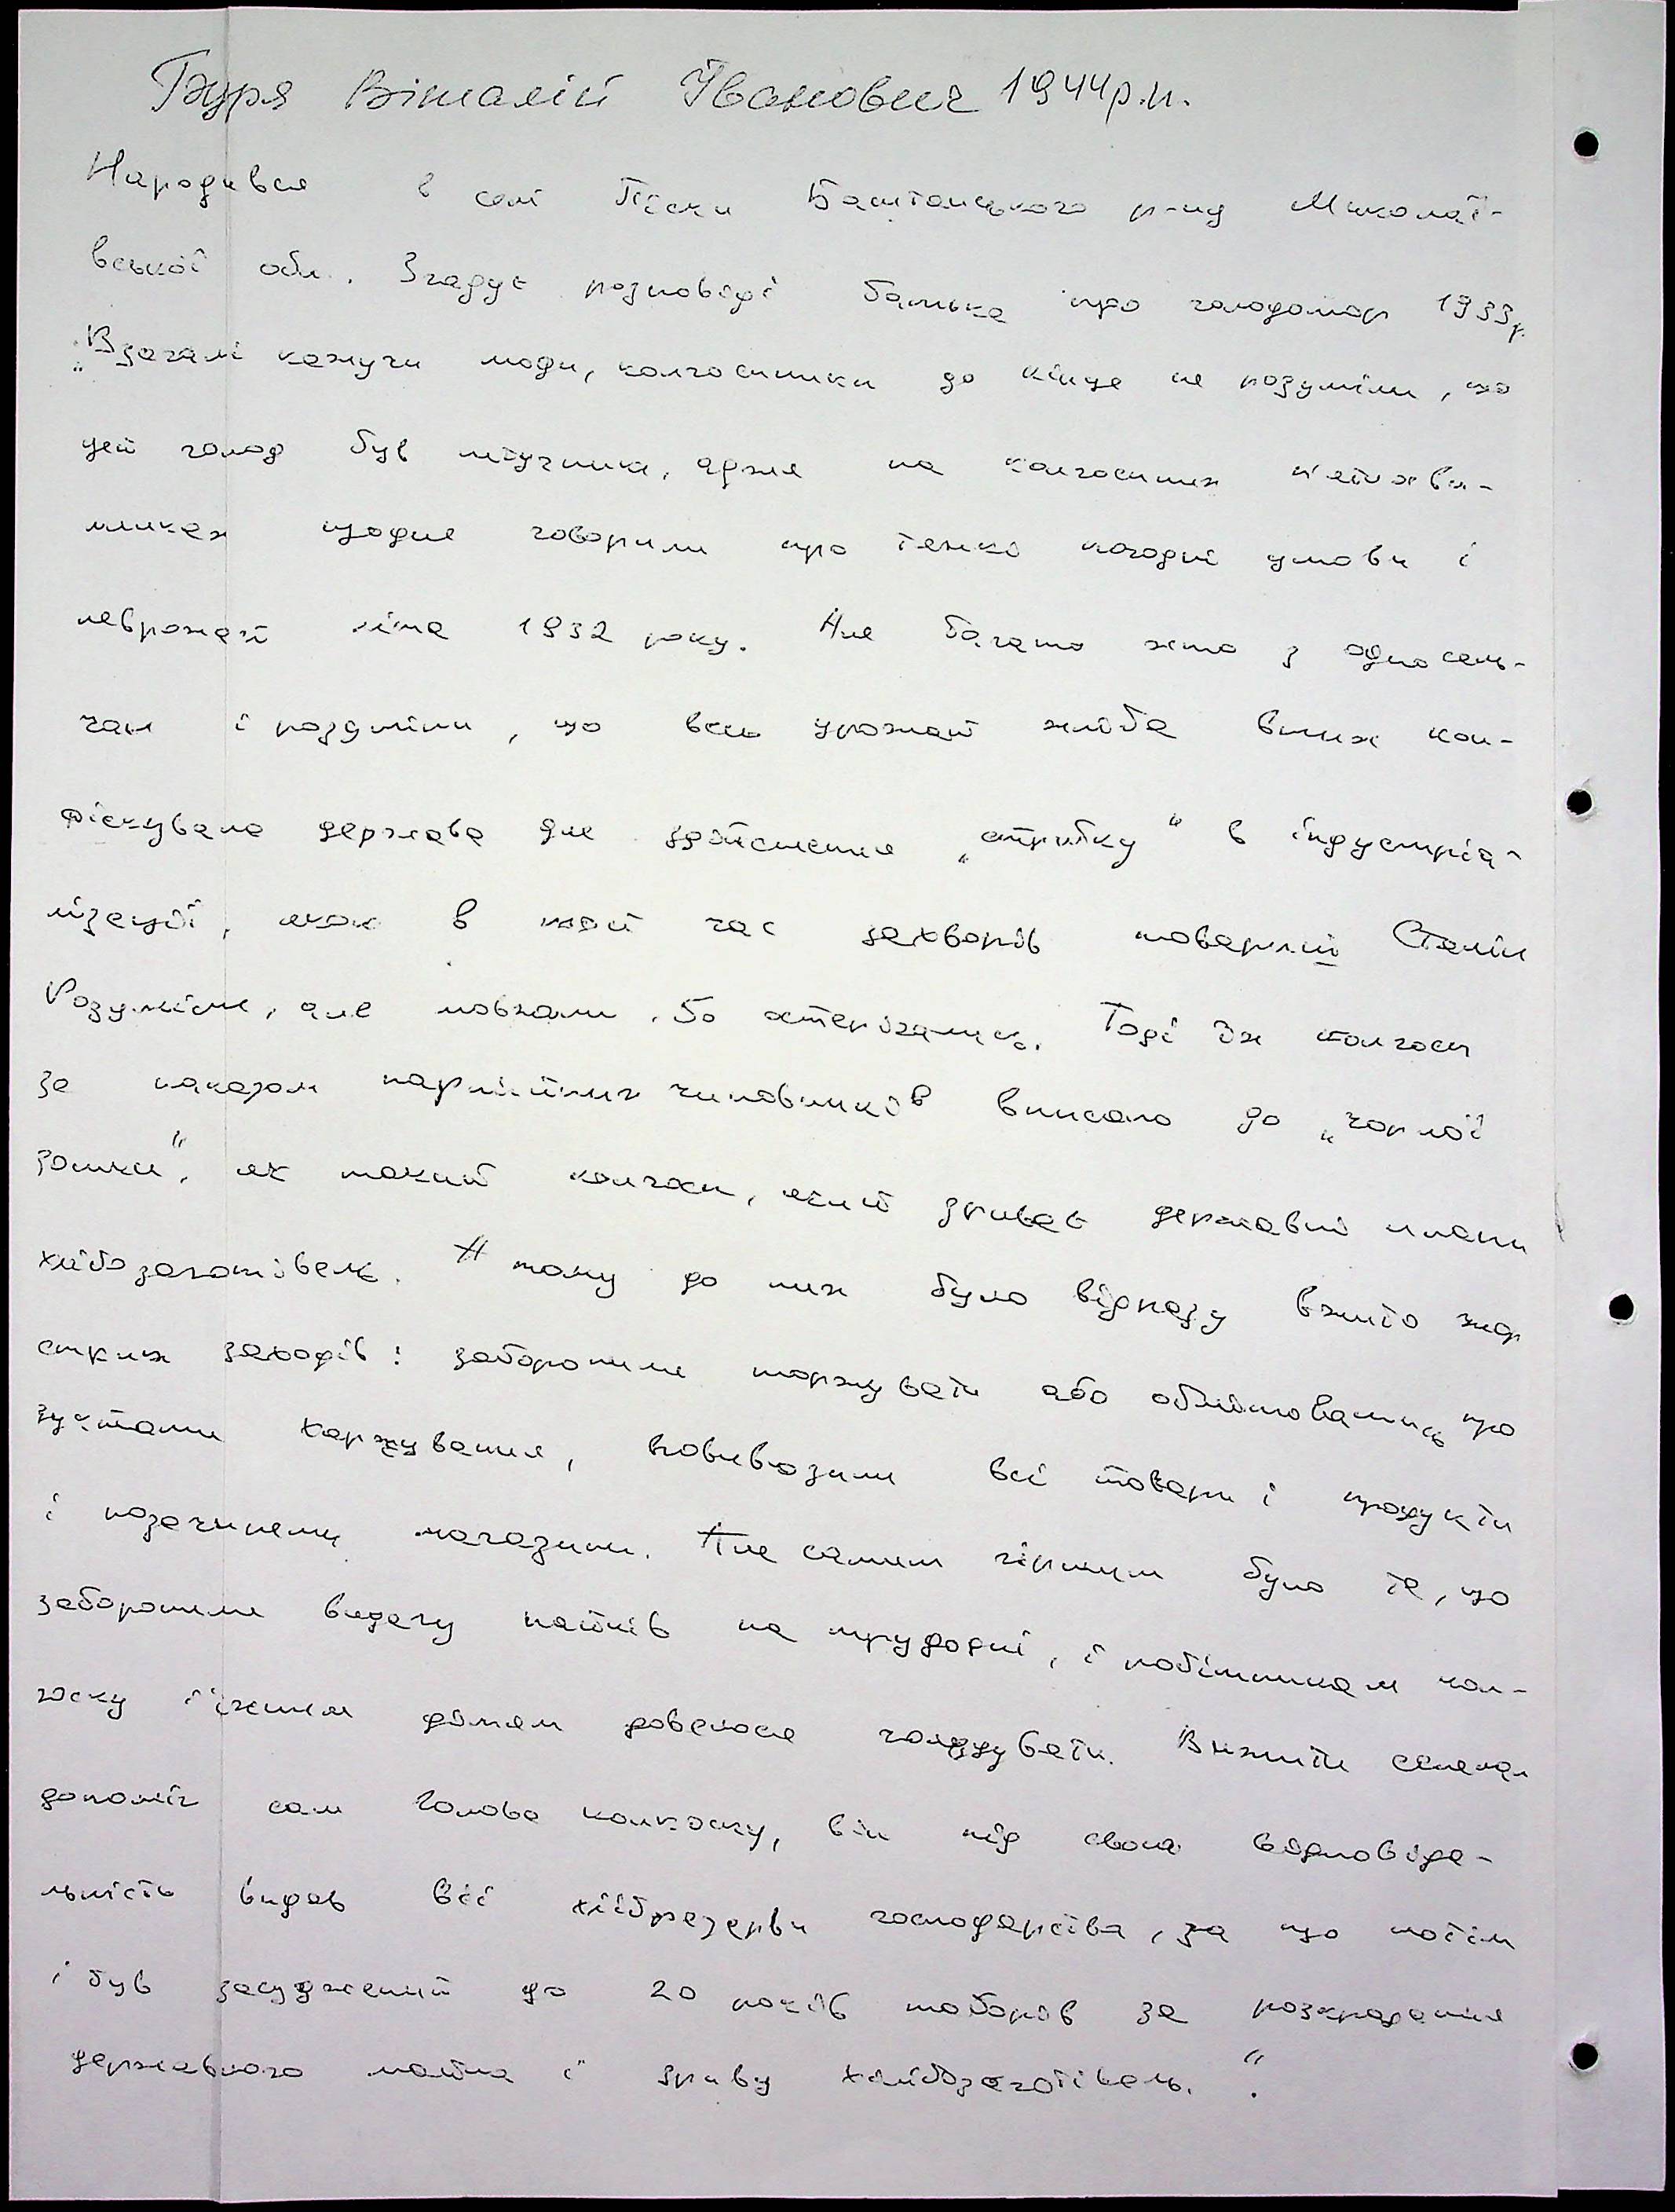 Буря Віталій Іванович 1944р.н.
Народився в селі Піски Баштанського р-ну Миколаї-
вської обл. Згадує розповіді батька про голодомор 1933р.
„Взагалі кажучи люди, колгоспники до кінця не розуміли, що
цей голод був штучним, адже на колгоспних п'ятихви-
линках щодня говорили про тяжкі погодні умови і
неврожай літа 1932 року. Але багато хто з односель-
чан і розуміли, що весь урожай хліба в них кон-
фіскувала держава для здійснення „стрибку" в індустріа-
лізації, якою в той час захворів товариш Сталін
Розуміли, але мовчали, бо остерігались. Тоді їх колгосп
за наказом партійних чиновників вписало до „чорної
дошки", як такий колгосп, який зриває державні плани
хлібозаготівель. А тому до них було відразу вжито жор
стких заходів: заборонили торгувати або обмінюватись про
дуктами харчування, повивозили всі товари і продукти
і позачиняли магазини. Але самим гіршим було те, що
заборонили видачу пайків на трудодні, і робітникам кол-
госпу і їхнім дітям довелося голодувати. Вижити селянам
допоміг сам голова колгоспу, він під свою відповіда-
льність видав всі хлібрезерви господарства, за що потім
і був засуджений до 20 років таборів за розкрадання
державного майна і зриву хлібозаготівель."